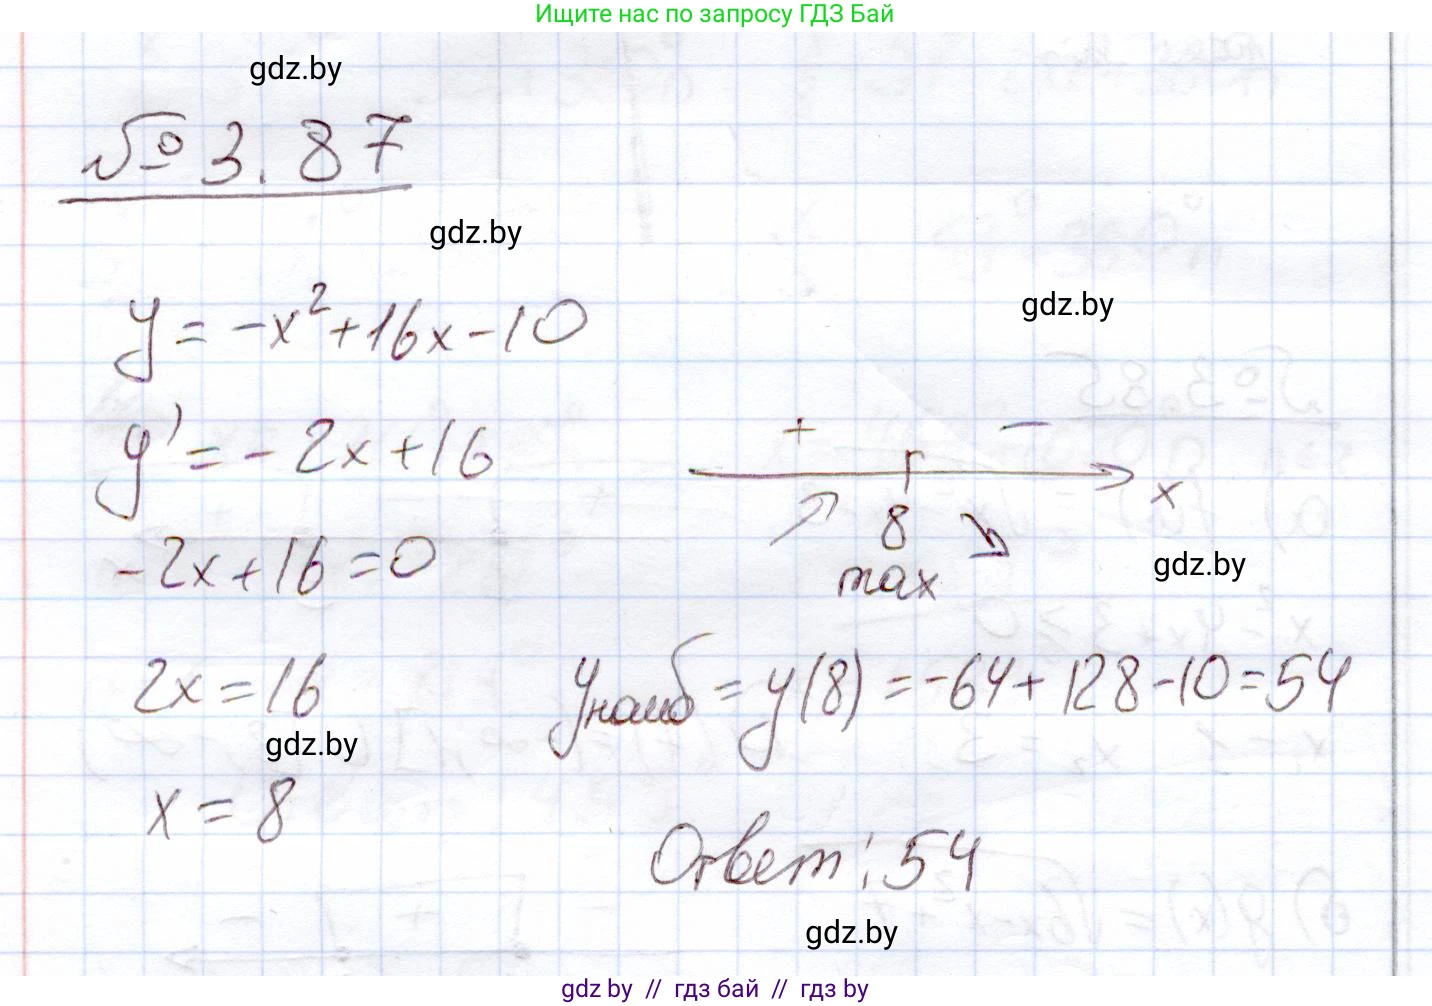 Ищите нас по запросу ГДЗ Бай
gdz.by
№ 3.87
gdz.by
y = -x² + 16x - 10
gdz.by
y' = -2x + 16
+ −
x
8
max
-2x + 16 = 0
gdz.by
2x = 16
yнаиб = y(8) = -64 + 128 - 10 = 54
gdz.by
x = 8
Ответ: 54
gdz.by
gdz by // гдз бай // гдз by